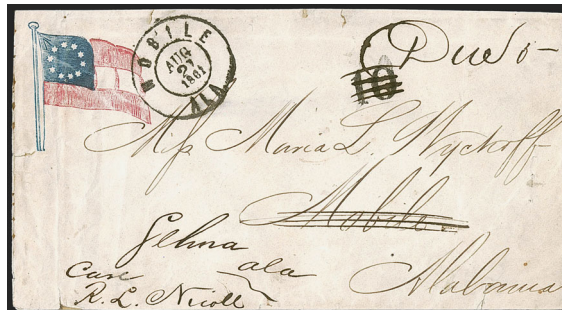 MOBILE
AUG
27
1861
ALA.
Due 5
10
Miss Maria L. Wyckoff
Mobile
Alabama
Selma
ala
Care
R. L. Nicoll